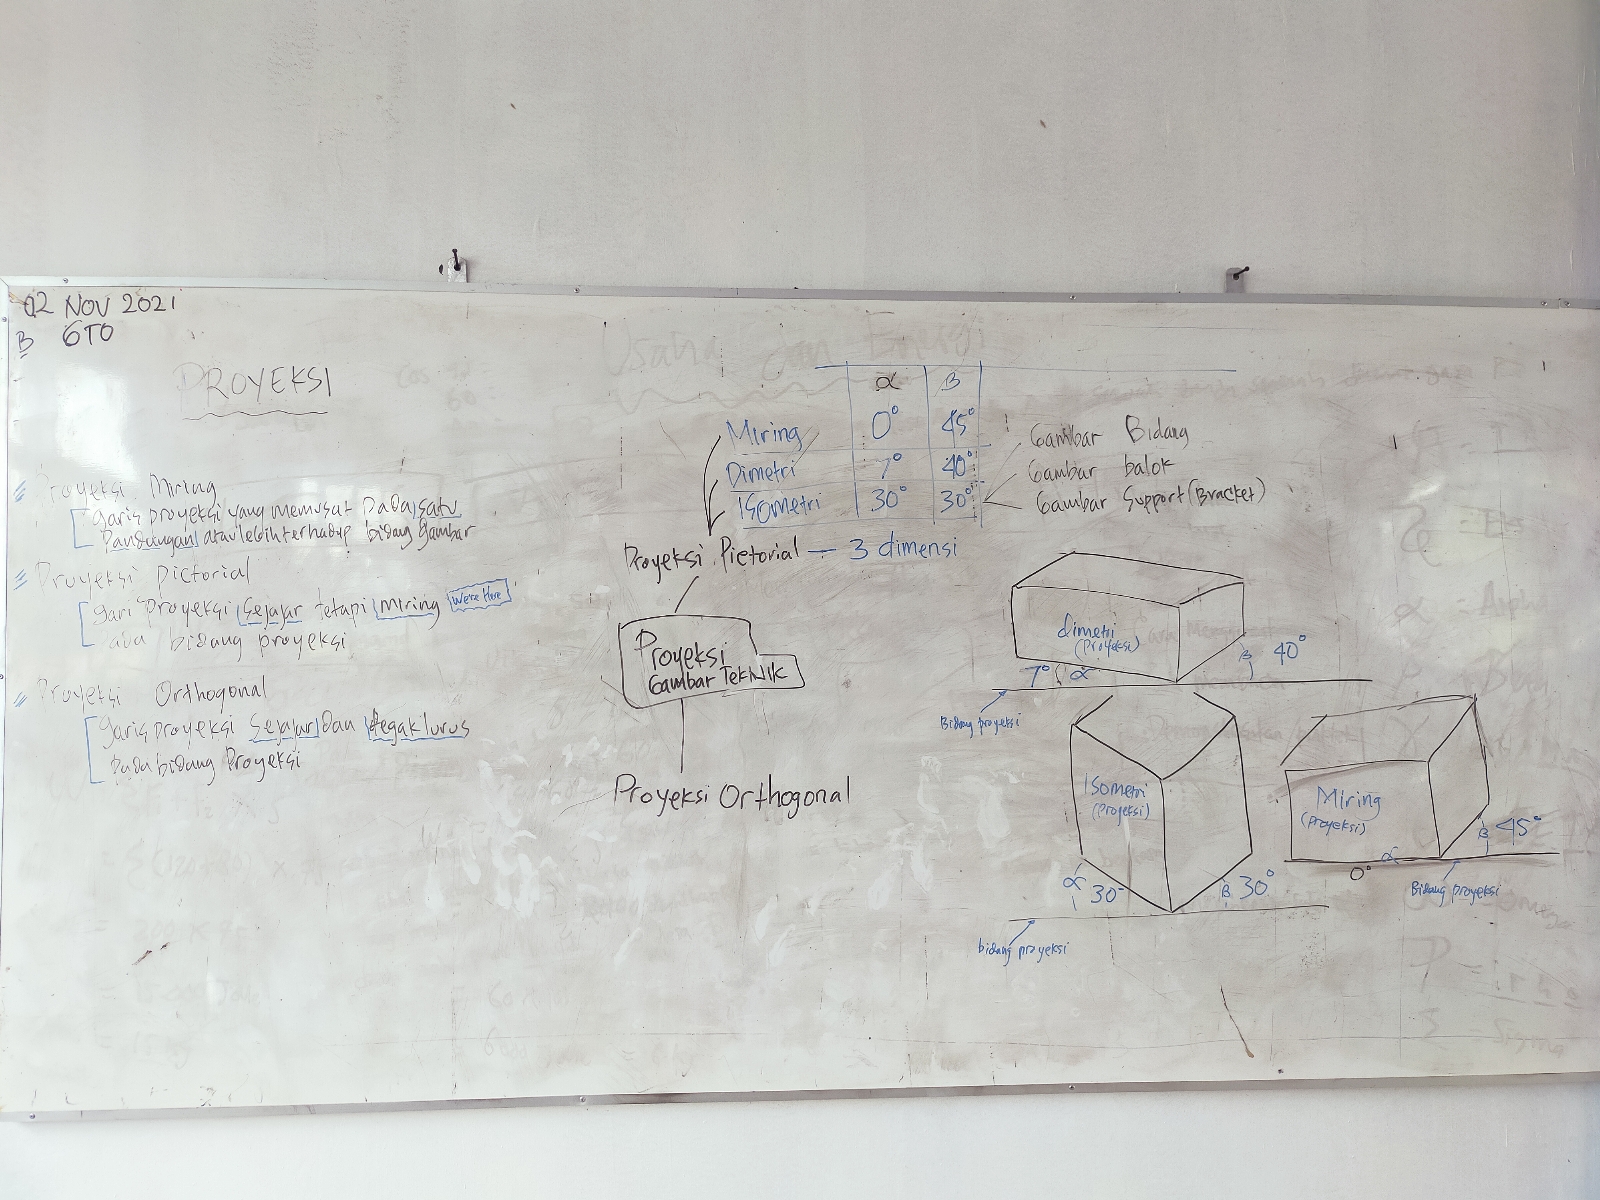 02 NOV 2021
B GTO
PROYEKSI
Proyeksi Miring
garis proyeksi yang memusat pada satu
pandangan atau lebih terhadap bidang gambar
Proyeksi Pictorial
gari proyeksi sejajar tetapi miring We're Here
bidang proyeksi
Proyeksi Orthogonal
garis proyeksi sejajar dan tegak lurus
pada bidang proyeksi
Usaha dan Energi
α β
Miring 0° 45°
Dimetri 7° 40°
Isometri 30° 30°
Gambar Bidang
Gambar balok
Gambar Support (Bracket)
Proyeksi Pictorial — 3 dimensi
Proyeksi
Gambar Teknik
Proyeksi Orthogonal
dimetri
(Proyeksi)
7° α
β 40°
Bidang proyeksi
Isometri
(Proyeksi)
α 30°
β 30°
bidang proyeksi
Miring
(Proyeksi)
β 45°
α
0°
Bidang proyeksi